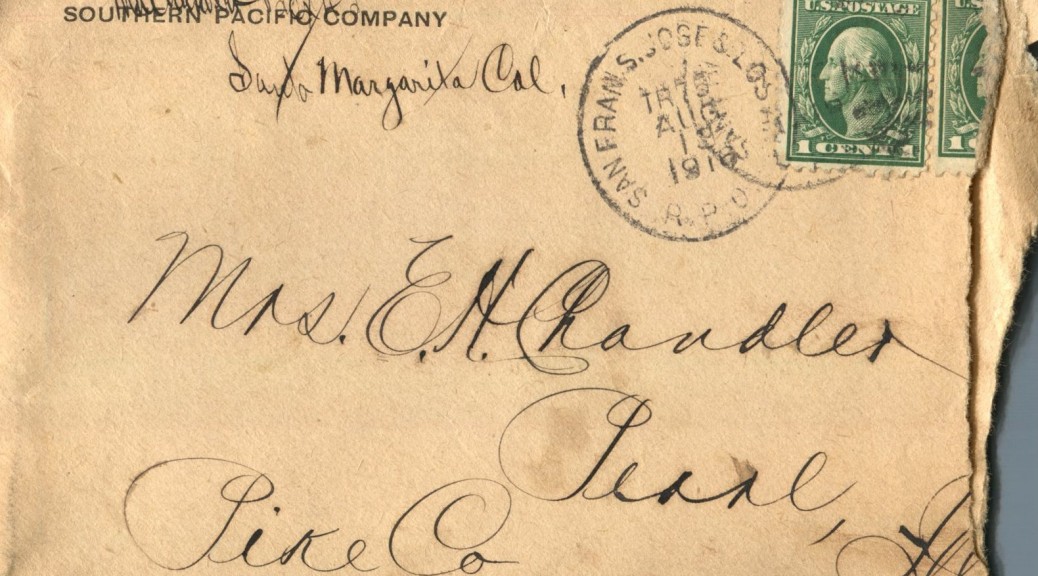 SOUTHERN PACIFIC COMPANY
Santa Margarita Cal.
SAN FRAN. S. JOSE & LOS
TR
AU
1
191
R.P.O.
U.S. POSTAGE
1 CENT 1
U.S.
1
Mrs. E. H. Chandler
Pearl,
Pike Co